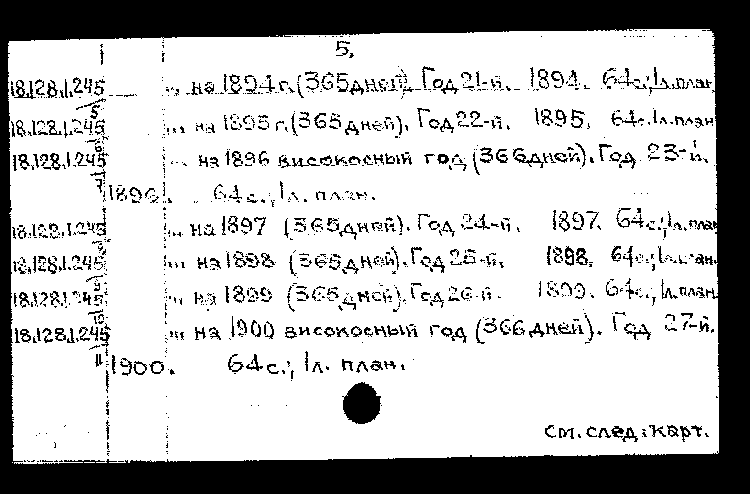 5.
18.128.1.245/5 ... на 1894 г. (365 дней). Год 21-й. 1894. 64 с.; 1 л. план
18.128.1.245/6 ... на 1895 г. (365 дней). Год 22-й. 1895. 64 с.; 1 л. план
18.128.1.245/7 ... на 1896 високосный год (366 дней). Год 23-й.
1896. 64 с.; 1 л. план.
18.128.1.245/8 ... на 1897 (365 дней). Год 24-й. 1897. 64 с.; 1 л. план
18.128.1.245/9 ... на 1898 (365 дней). Год 25-й. 1898. 64 с.; 1 л. план.
18.128.1.245/10 ... на 1899 (365 дней). Год 26-й. 1899. 64 с.; 1 л. план.
18.128.1.245/11 ... на 1900 високосный год (366 дней). Год 27-й.
1900. 64 с.; 1 л. план.
см. след. карт.